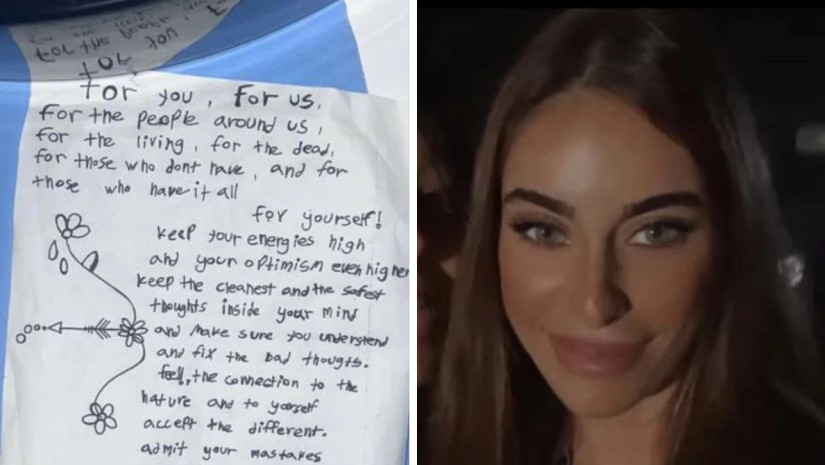 For you, for us,
for the people around us,
for the living, for the dead,
for those who dont have, and for
those who have it all
for yourself!
keep your energies high
and your optimism even higher
keep the cleanest and the safest
thoughts inside your mind
and make sure you understand
and fix the bad thougts.
feel, the connection to the
nature and to yourself
accept the different.
admit your mastakes